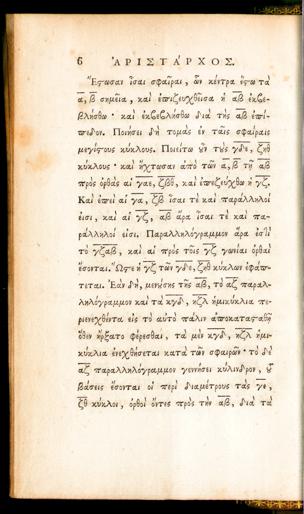 6 ἈΡΙΣΤΆΡΧΟΣ.
Ἔστωσαν ἴσαι σφαῖραι, ὧν κέντρα ἔστω τὰ
α, β σημεῖα, καὶ ἐπιζευχθεῖσα ἡ αβ ἐκβε-
βλήσθω· καὶ ἐκβεβλήσθω διὰ τῆς αβ ἐπί-
πεδον. Ποιήσει δὴ τομὰς ἐν ταῖς σφαίραις
μεγίστους κύκλους. Ποιείτω οὖν τοὺς γδε, ζηθ
κύκλους· καὶ ἤχτωσαν ἀπὸ τῶν α, β τῇ αβ
πρὸς ὀρθὰς αἱ γαε, ζβθ, καὶ ἐπεζεύχθω ἡ γζ.
Καὶ ἐπεὶ αἱ γα, ζβ ἴσαι τὲ καὶ παράλληλοί
εἰσι, καὶ αἱ γζ, αβ ἄρα ἴσαι τὲ καὶ πα-
ράλληλοί εἰσι. Παραλληλόγραμμον ἄρα ἐστὶ
τὸ γζαβ, καὶ αἱ πρὸς τοῖς γζ γωνίαι ὀρθαὶ
ἔσονται. Ὥστε ἡ γζ τῶν γδε, ζηθ κύκλων ἐφάπ-
τεται. Ἐὰν δὴ, μενούσης τῆς αβ, τὸ αζ παραλ-
ληλόγραμμον καὶ τὰ κγδ, ηζλ ἡμικύκλια πε-
ριενεχθέντα εἰς τὸ αὐτὸ πάλιν ἀποκατασταθῇ
ὅθεν ἤρξατο φέρεσθαι, τὰ μὲν κγδ, ηζλ ἡμι-
κύκλια ἐνεχθήσεται κατὰ τῶν σφαιρῶν· τὸ δὲ
αζ παραλληλόγραμμον γεννήσει κύλινδρον, οὗ
βάσεις ἔσονται οἱ περὶ διαμέτρους τὰς γε,
ζθ κύκλοι, ὀρθοὶ ὄντες πρὸς τὴν αβ, διὰ τὸ